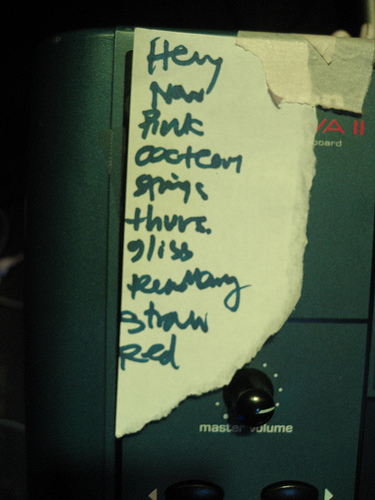 Hey
Now
Pink
cocteau
springs
thurs.
gliss
RemMany
straw
Red
VA II
board
master volume